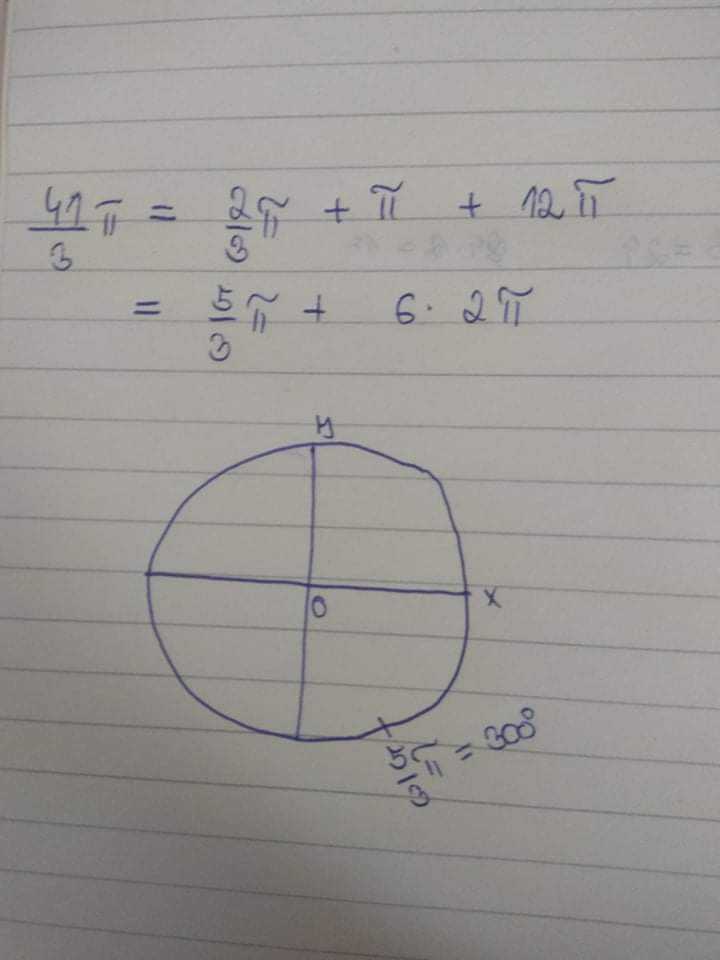 41/3 π = 2/3 π + π + 12 π
= 5/3 π + 6 · 2 π
y
x
O
5/3 π = 300°